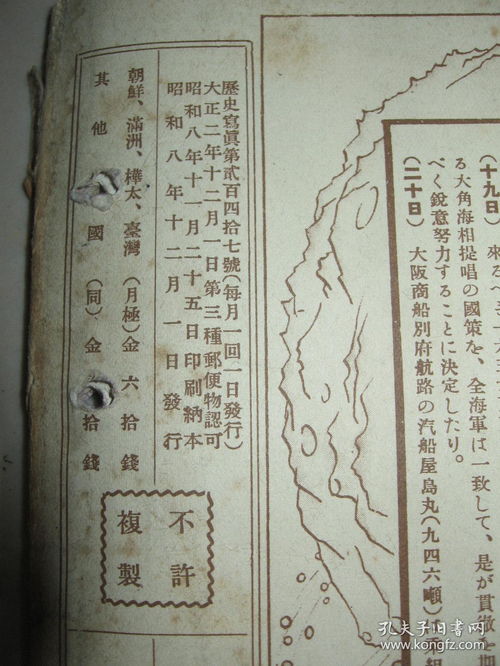 歷史寫眞第貳百四拾七號(每月一回一日發行)
大正二年十二月一日第三種郵便物認可
昭和八年十一月二十五日印刷納本
昭和八年十二月一日發行
朝鮮、滿洲、樺太、臺灣(月極)金六拾錢
其他 國(同)金 拾錢
不許
複製
(十九日) 來る
る大角海相提唱の國策を、全海軍は一致して、是が貫徹
べく銳意努力することに決定したり。
(二十日) 大阪商船別府航路の汽船屋島丸(九四六噸)
孔夫子旧书网
www.kongfz.com